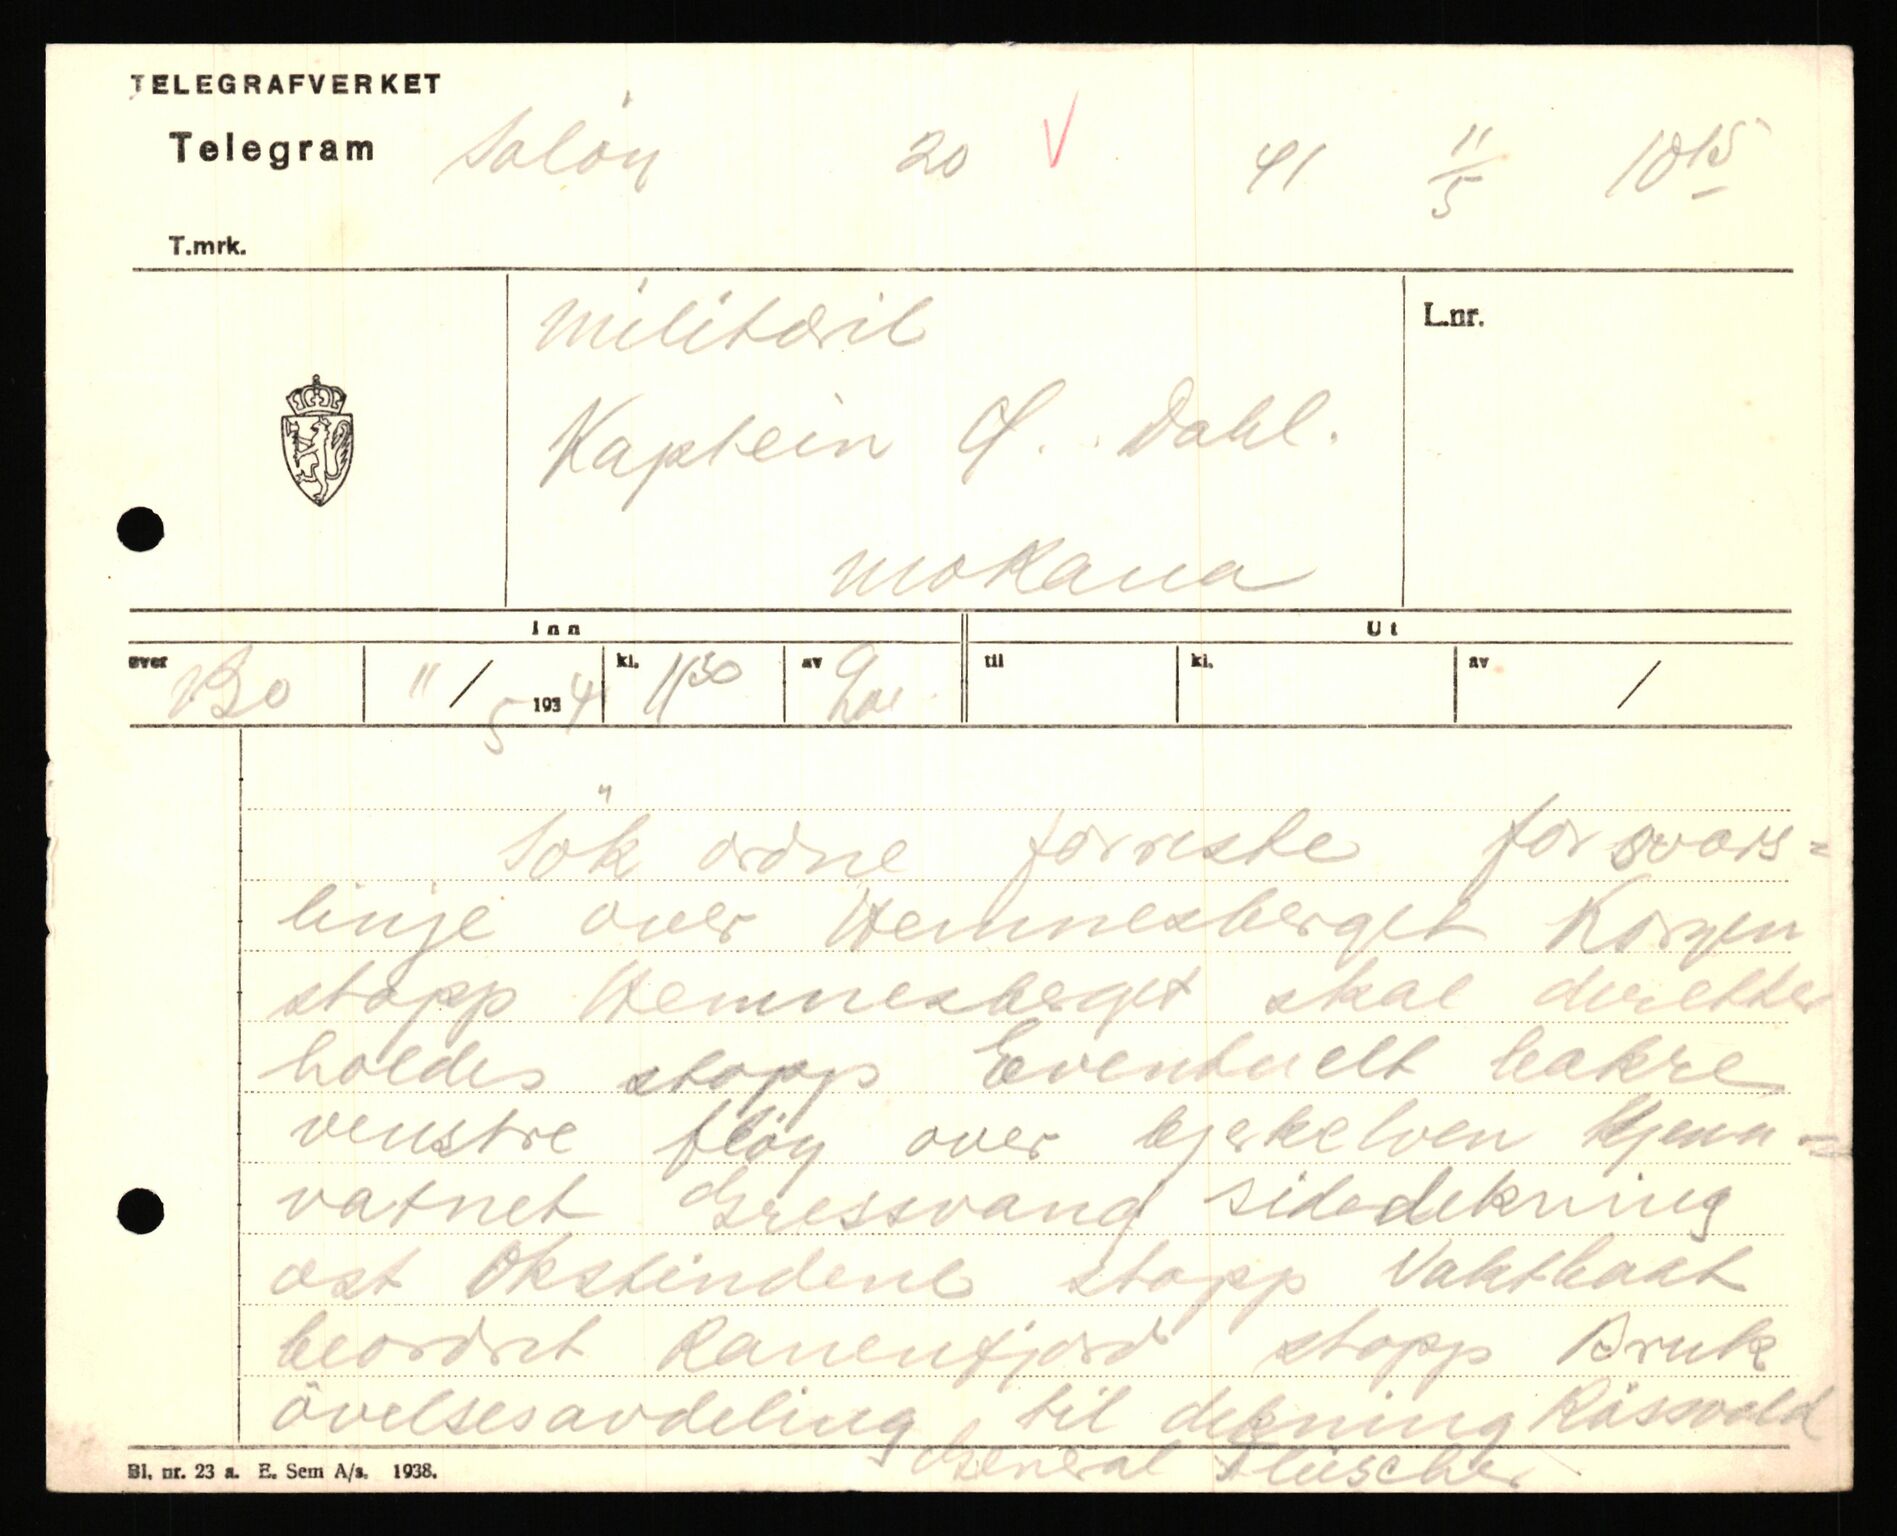 TELEGRAFVERKET
Telegram Solöy 20 V 41 11/5 10 15
T.mrk.
Militæril
Kaptein Ø. Dahl.
Mo Rana
L.nr.
Inn Ut
over Bo 11/5 1934 kl. 11 30 av til kl. av /
Sök ordne forreste forsvars=
linje over Hemnesberget Korgen
stopp Hemnesberget skal deretter
holdes stopp Eventuelt bakre
venstre flöy over bjerkelven Kjenn=
vatnet Gressvand sidedekning
ost Okstindene stopp Vaktbaat
beordret Ranenfjord stopp Bruk
övelsesavdeling til dekning Rösvold
General Fleischer
Bl. nr. 23 a. E. Sem A/s. 1938.